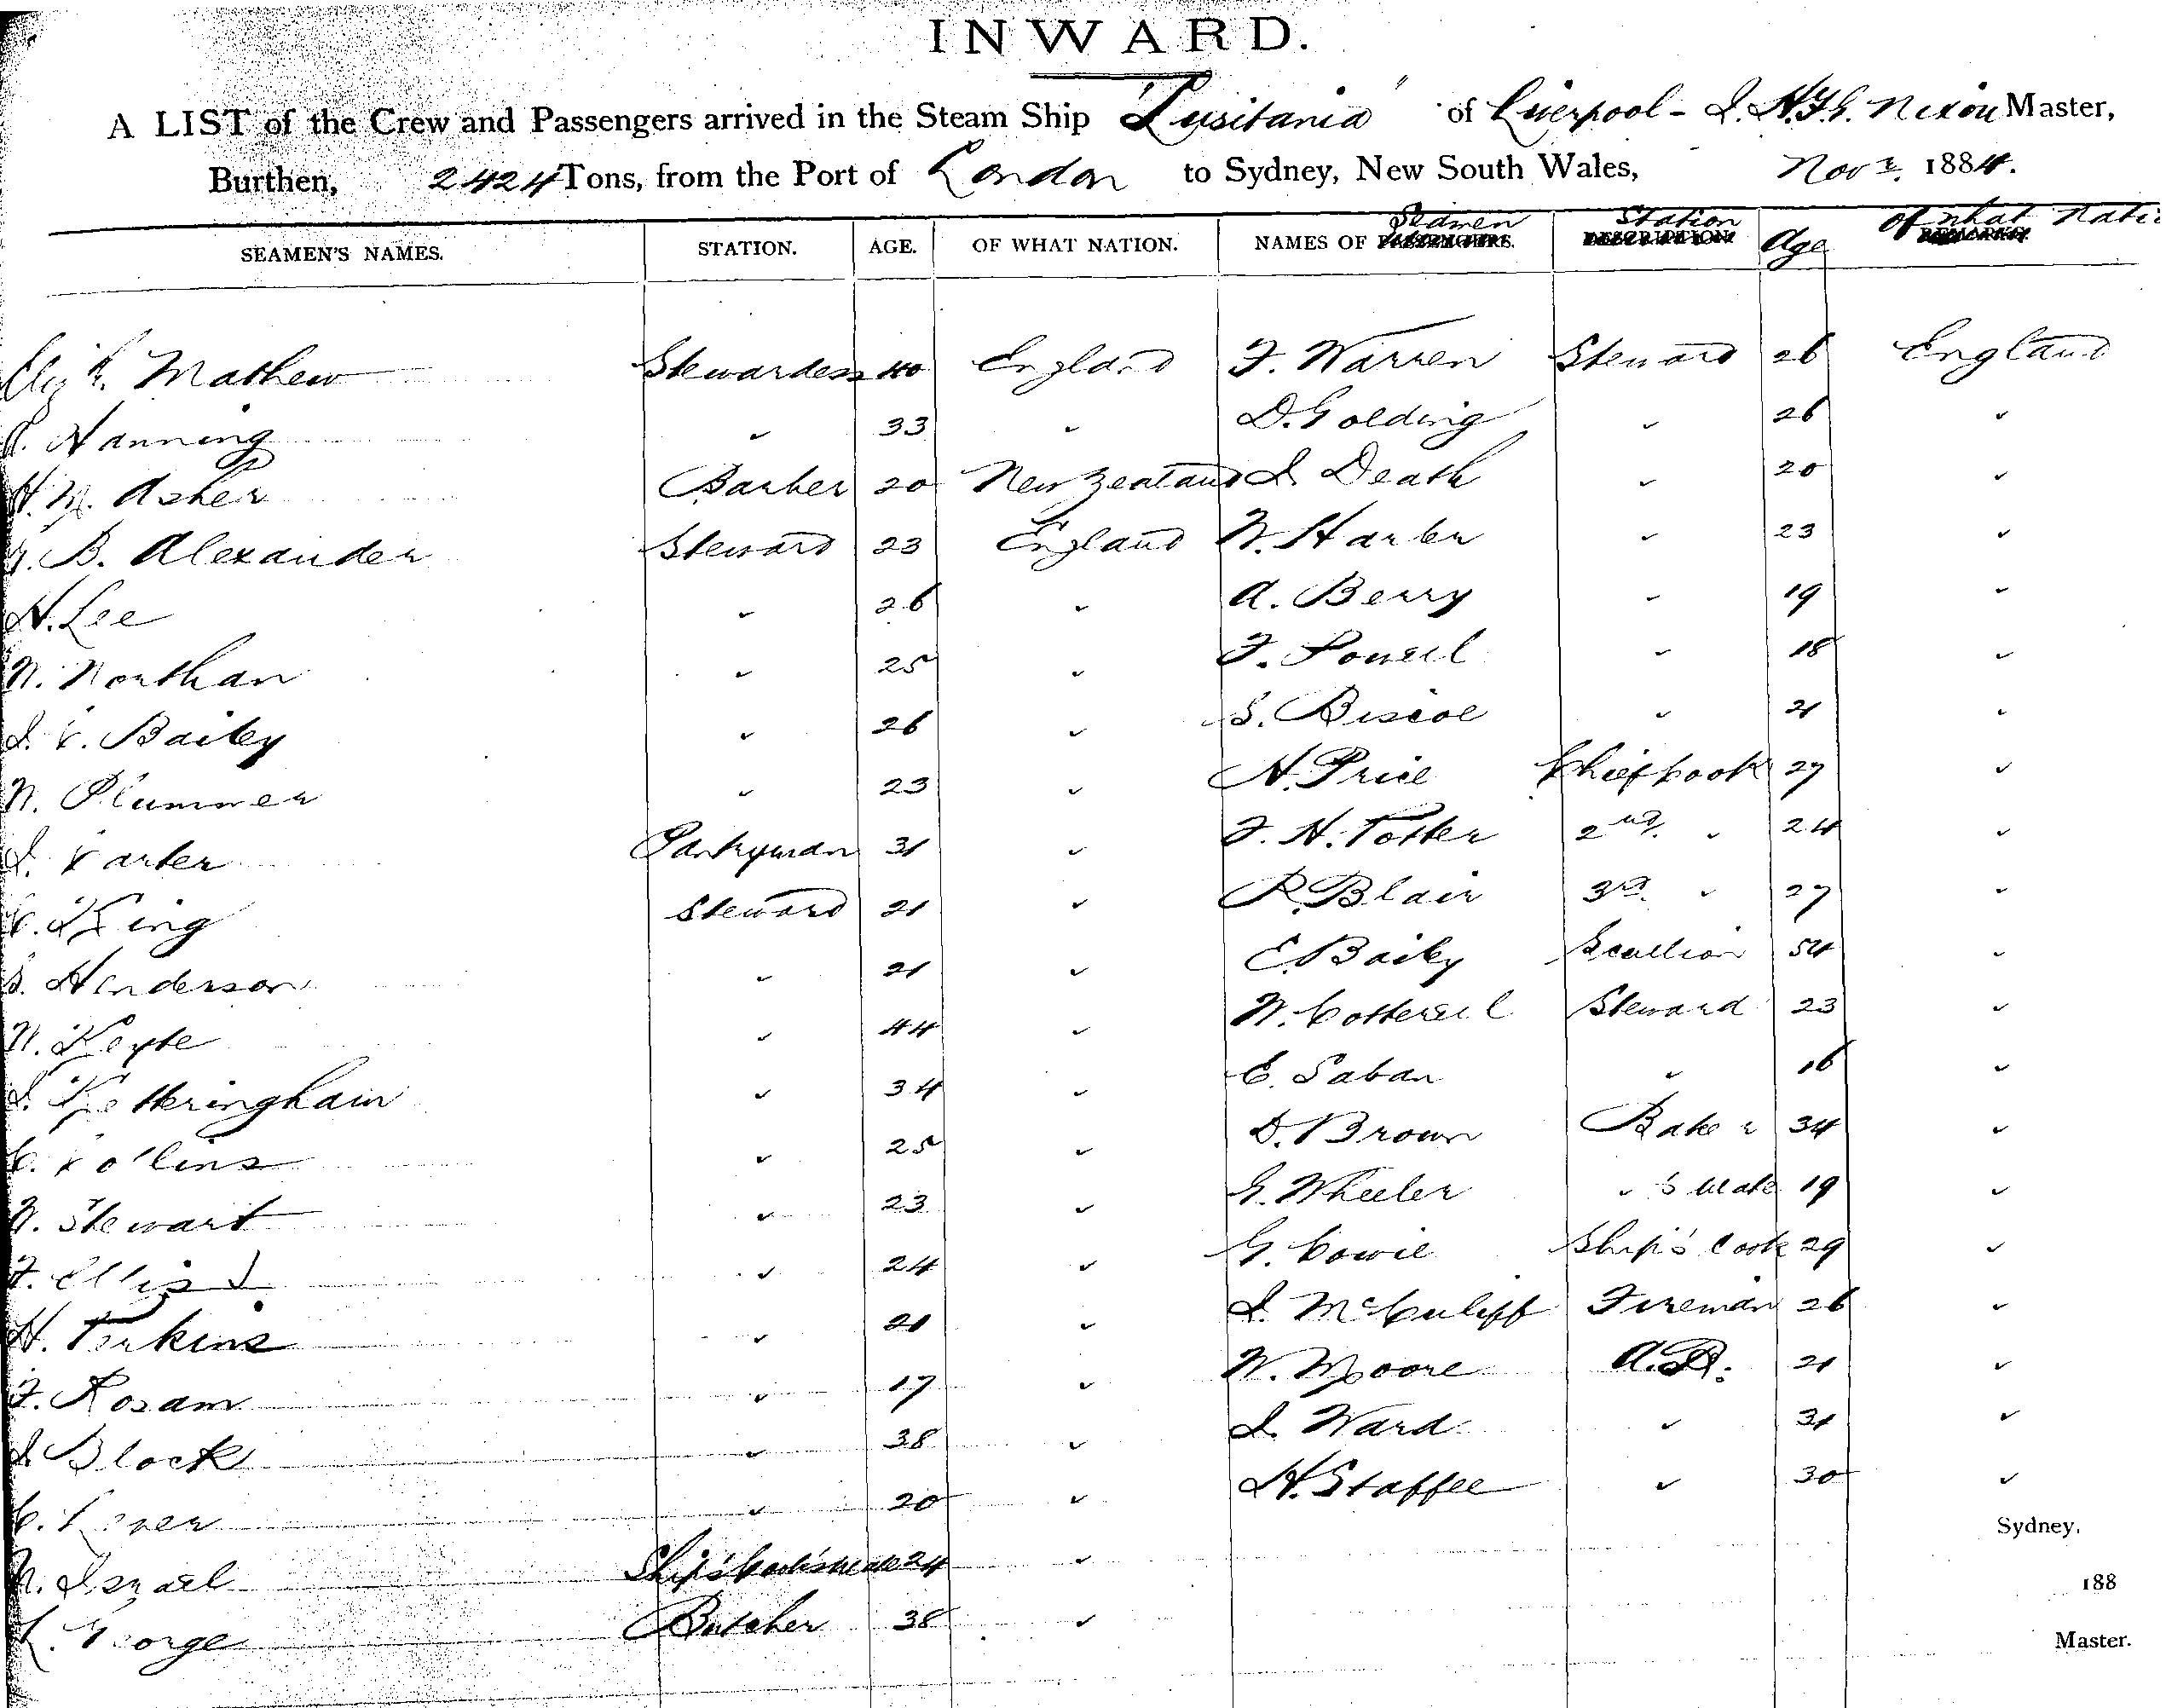 INWARD.
A LIST of the Crew and Passengers arrived in the Steam Ship "Lusitania" of Liverpool - Nixon Master,
Burthen, 2424 Tons, from the Port of London to Sydney, New South Wales, Nov 1884.
SEAMEN'S NAMES. STATION. AGE. OF WHAT NATION. NAMES OF Seamen Station Age Of what Natio
Mathew Stewardess 40 England F. Warren Steward 26 England
Nanning " 33 " D. Golding " 26 "
Asher Barber 20 New Zealand J. Death " 20 "
B. Alexander Steward 23 England W. Harber " 23 "
H. Lee " 26 " A. Berry " 19 "
W. Northan " 25 " F. Powell " 18 "
J. C. Baily " 26 " S. Biscoe " 21 "
W. Plummer " 23 " H. Price Chief Cook 27 "
J. Carter Pantryman 31 " F. H. Potter 2nd. " 24 "
C. King Steward 21 " R. Blair 3rd. " 27 "
Henderson " 21 " E. Baily Scullion 54 "
W. Keyte " 44 " W. Cotterell Steward 23 "
J. Ketteringham " 34 " E. Saban " 16 "
C. Collins " 25 " D. Brown Baker 34 "
W. Stewart " 23 " G. Wheeler " 's Mate 19 "
F. Ellis " 24 " G. Cowie Ship's Cook 29 "
H. Perkins " 21 " J. McCuliff Fireman 26 "
F. Rosam " 17 " W. Moore A.B. 21 "
J. Block " 38 " J. Ward " 31 "
C. " 20 " H. Staffee " 30 "
Sydney.
Israel Ship's Cook's Mate 24 "
188
George Butcher 38 "
Master.